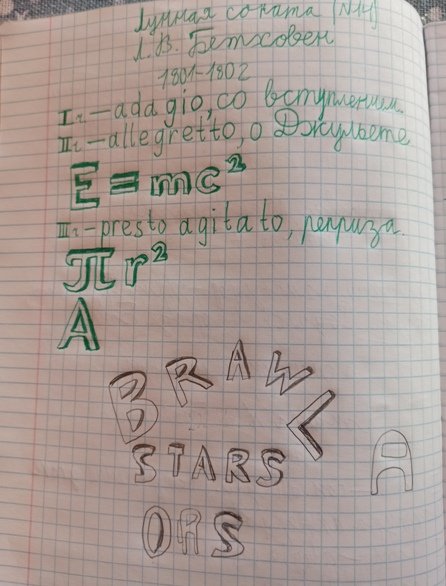 Лунная соната (№14)
Л. В. Бетховен
1801-1802
I ч.—adagio, со вступлением.
II ч—allegretto, о Джульете
E = mc²
III ч—presto agitato, реприза.
πr²
A
BRAWL
STARS
A
ORS